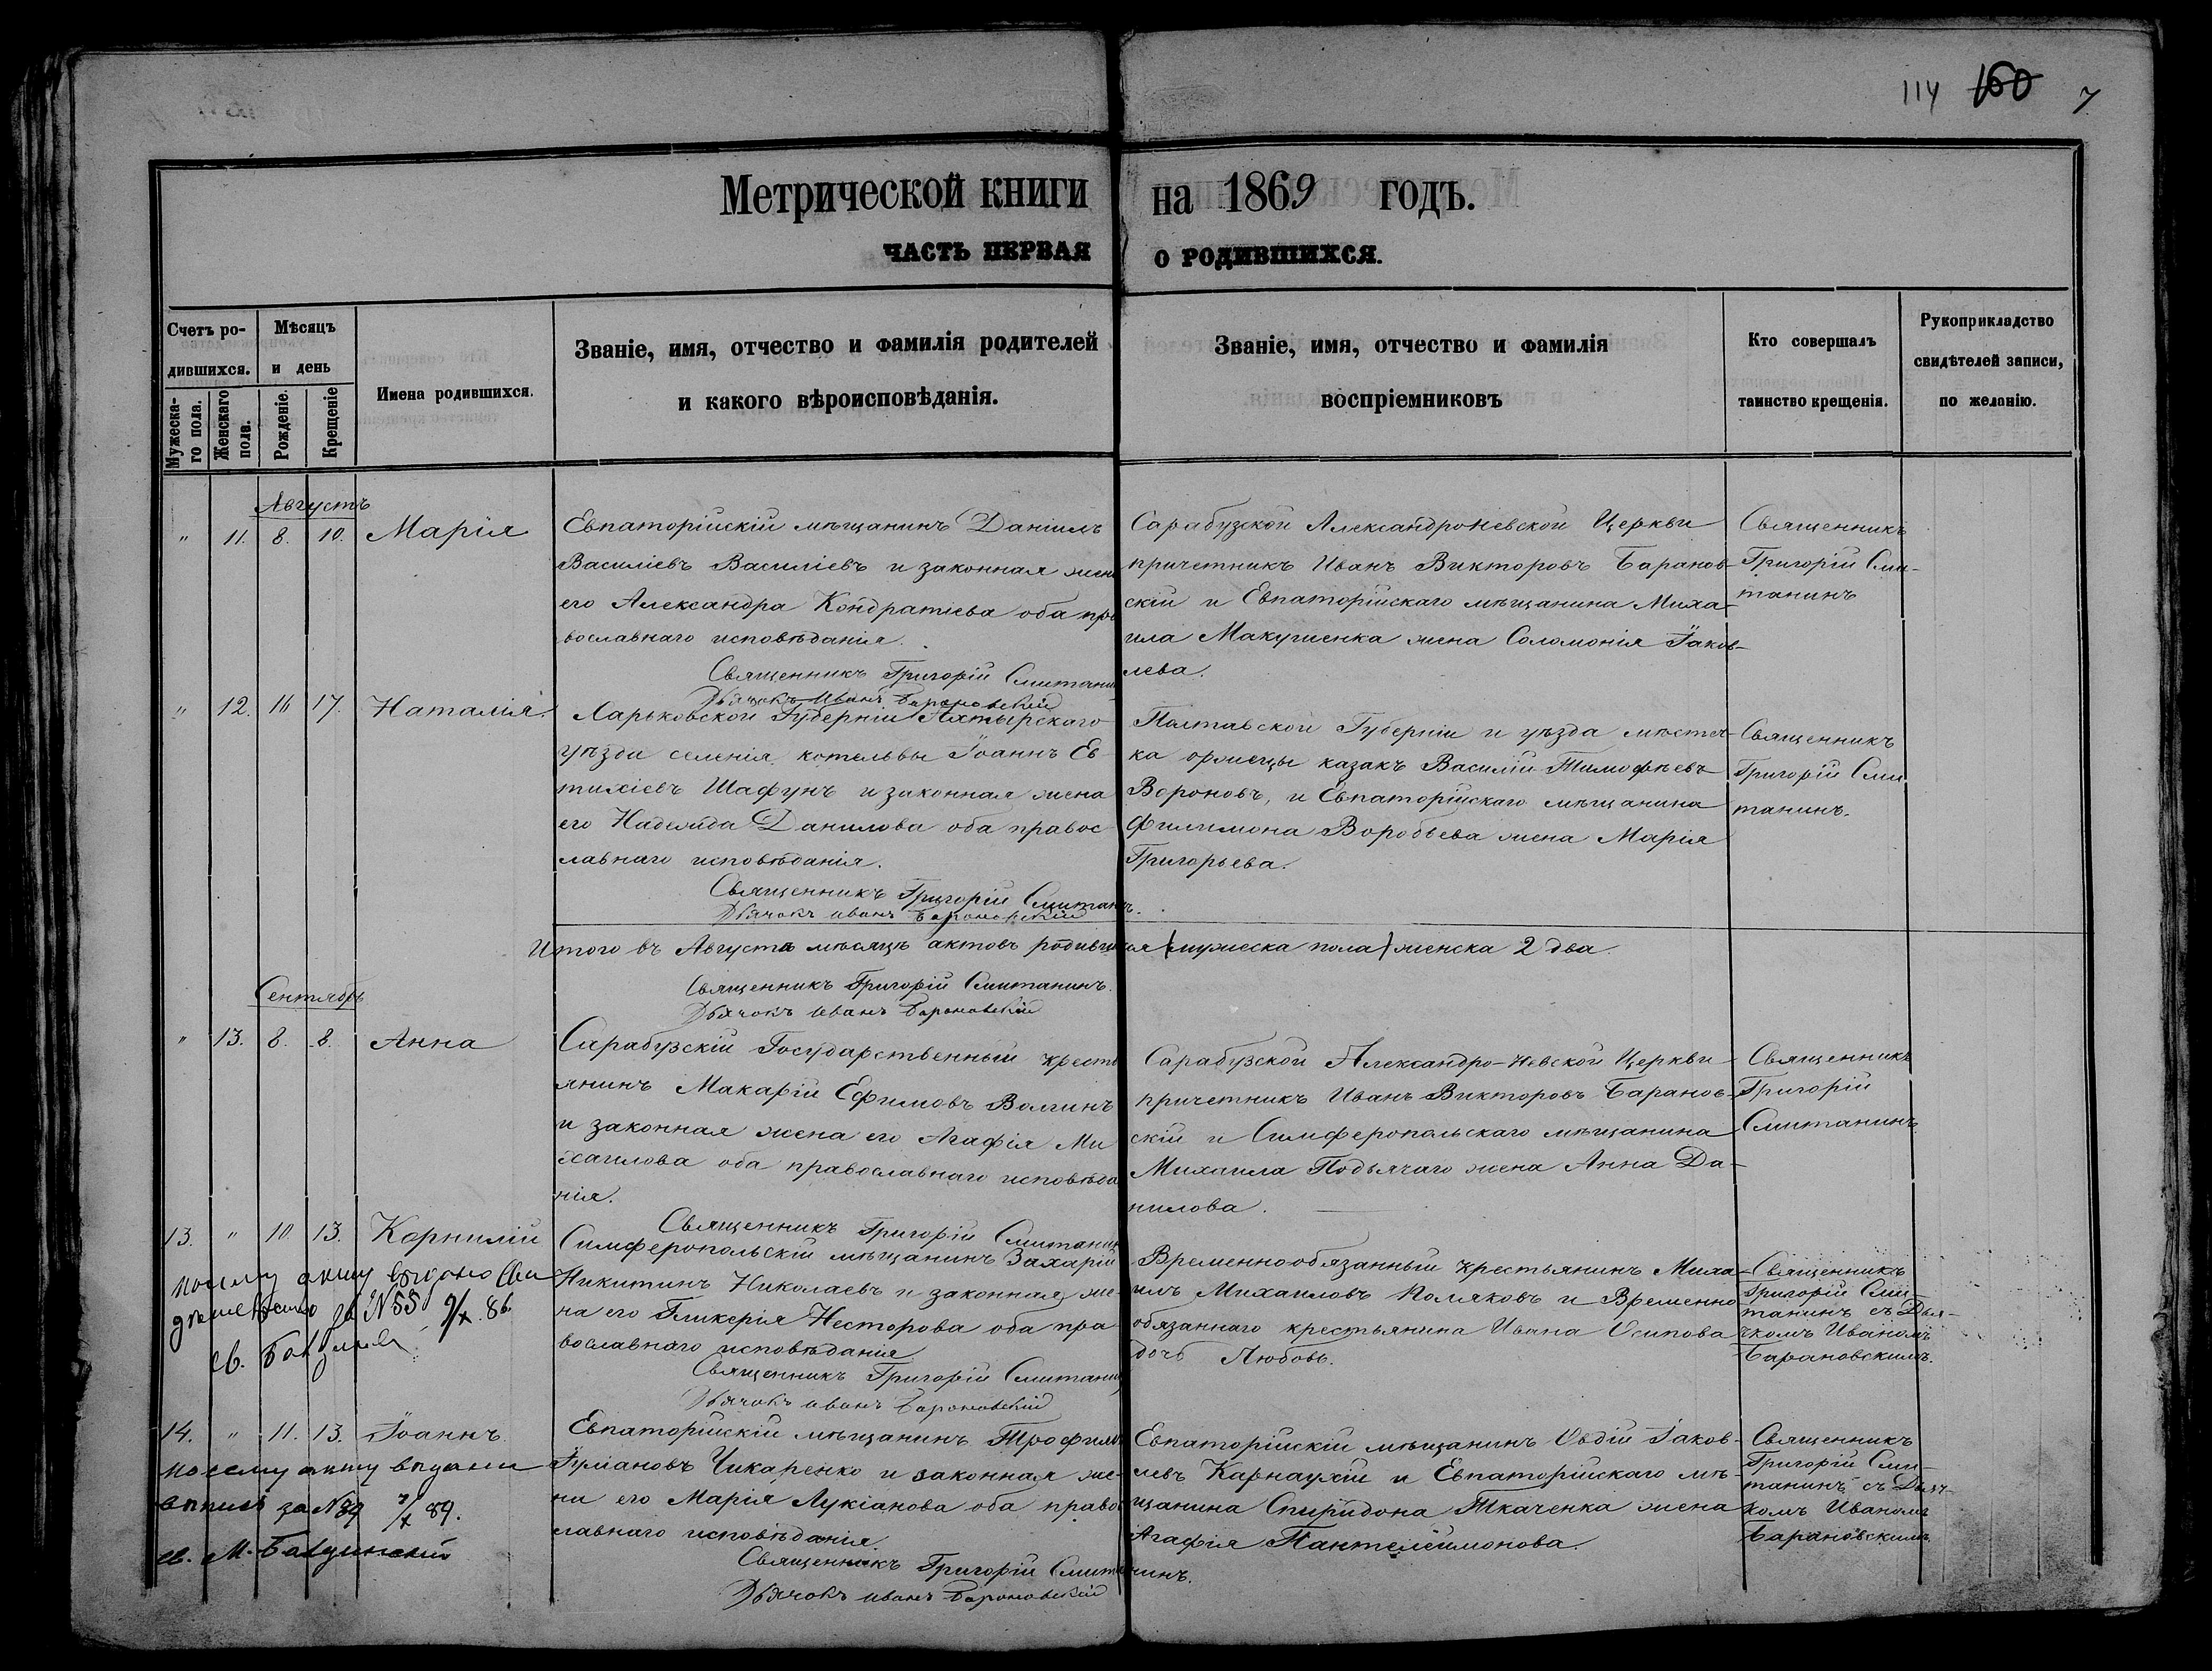 114 160 7
Метрической книги на 1869 годъ.
ЧАСТЬ ПЕРВАЯ О РОДИВШИХСЯ.
Счетъ ро-
дившихся.
Мужеска-
го пола.
Женскаго
пола.
Мѣсяцъ
и день
Рожденіе.
Крещеніе
Имена родившихся.
Званіе, имя, отчество и фамилія родителей
и какого вѣроисповѣданія.
Званіе, имя, отчество и фамилія
воспріемниковъ
Кто совершалъ
таинство крещенія.
Рукоприкладство
свидѣтелей записи,
по желанію.
Августъ
" 11. 8. 10. Марія
Евпаторійскій мѣщанинъ Даніилъ
Василіевъ Василіевъ и законная жена
его Александра Кондратіева оба пра
вославнаго исповѣданія.
Священникъ Григорій Смитанинъ
Дьячокъ Иванъ Барановскій
Сарабузской Александроневской Церкви
причетникъ Иванъ Викторовъ Баранов-
скій и Евпаторійскаго мѣщанина Миха-
ила Макушенка жена Соломонія Іаков-
лева.
Священникъ
Григорій Сми-
танинъ
" 12. 16 17. Наталія.
Харьковской Губерніи Ахтырскаго
уѣзда селенія котельвы Іоаннъ Ев
тихіевъ Шафунъ и законная жена
его Надежда Данилова оба правос-
лавнаго исповѣданія.
Священникъ Григорій Смитанинъ.
Дьячокъ Иванъ Барановскій
Полтавской Губерніи и уѣзда мѣстеч-
ка оржицы казакъ Василій Тимофѣевъ
Вороновъ, и Евпаторійскаго мѣщанина
Филимона Воробьева жена Марія
Григорьева.
Священникъ
Григорій Сми
танинъ.
Итого въ Августѣ мѣсяцѣ актовъ родившихся (мужеска пола) женска 2 два.
Священникъ Григорій Смитанинъ.
Дьячокъ Иванъ Барановскій
Сентябрь
" 13. 8. 8. Анна
Сарабузскій Государственный кресть
янинъ Макарій Ефимовъ Волгинъ
и законная жена его Агафія Ми
хаилова оба православнаго исповѣда
нія.
Священникъ Григорій Смитанинъ
Сарабузской Александро-Невской Церкви
причетникъ Иванъ Викторовъ Баранов-
скій и Симферопольскаго мѣщанина
Михаила Подьячаго жена Анна Да-
нилова.
Священникъ
Григорій
Смитанинъ
13. " 10. 13. Корнилій
По сему акту выдано Сви
дѣтельство за № 55 9/X 86.
св.
Симферопольскій мѣщанинъ Захарій
Никитинъ Николаевъ и законная же-
на его Гликерія Несторова оба пра-
вославнаго исповѣданія
Священникъ Григорій Смитанинъ
Дьячокъ Иванъ Барановскій
Временнообязанный крестьянинъ Миха-
илъ Михаиловъ Поляковъ и Временно
обязаннаго крестьянина Ивана Осипова
дочь Любовь.
Священникъ
Григорій Сми
танинъ съ Дья-
чкомъ Иваномъ
Барановскимъ.
14. " 11. 13. Іоаннъ.
По сему акту выдана
выпись за № 89 7/X 89.
св. М.
Евпаторійскій мѣщанинъ Трофимъ
Чикаренко и законная же-
на его Марія Лукіанова оба право
славнаго исповѣданія.
Священникъ Григорій Смитанинъ.
Дьячокъ Иванъ Барановскій
Евпаторійскій мѣщанинъ Овдій Іаков-
левъ Карнаухій и Евпаторійскаго мѣ-
щанина Спиридона Ткаченка жена
Агафія Пантелеимонова.
Священникъ
Григорій Сми-
танинъ съ Дьяч-
комъ Иваномъ
Барановскимъ